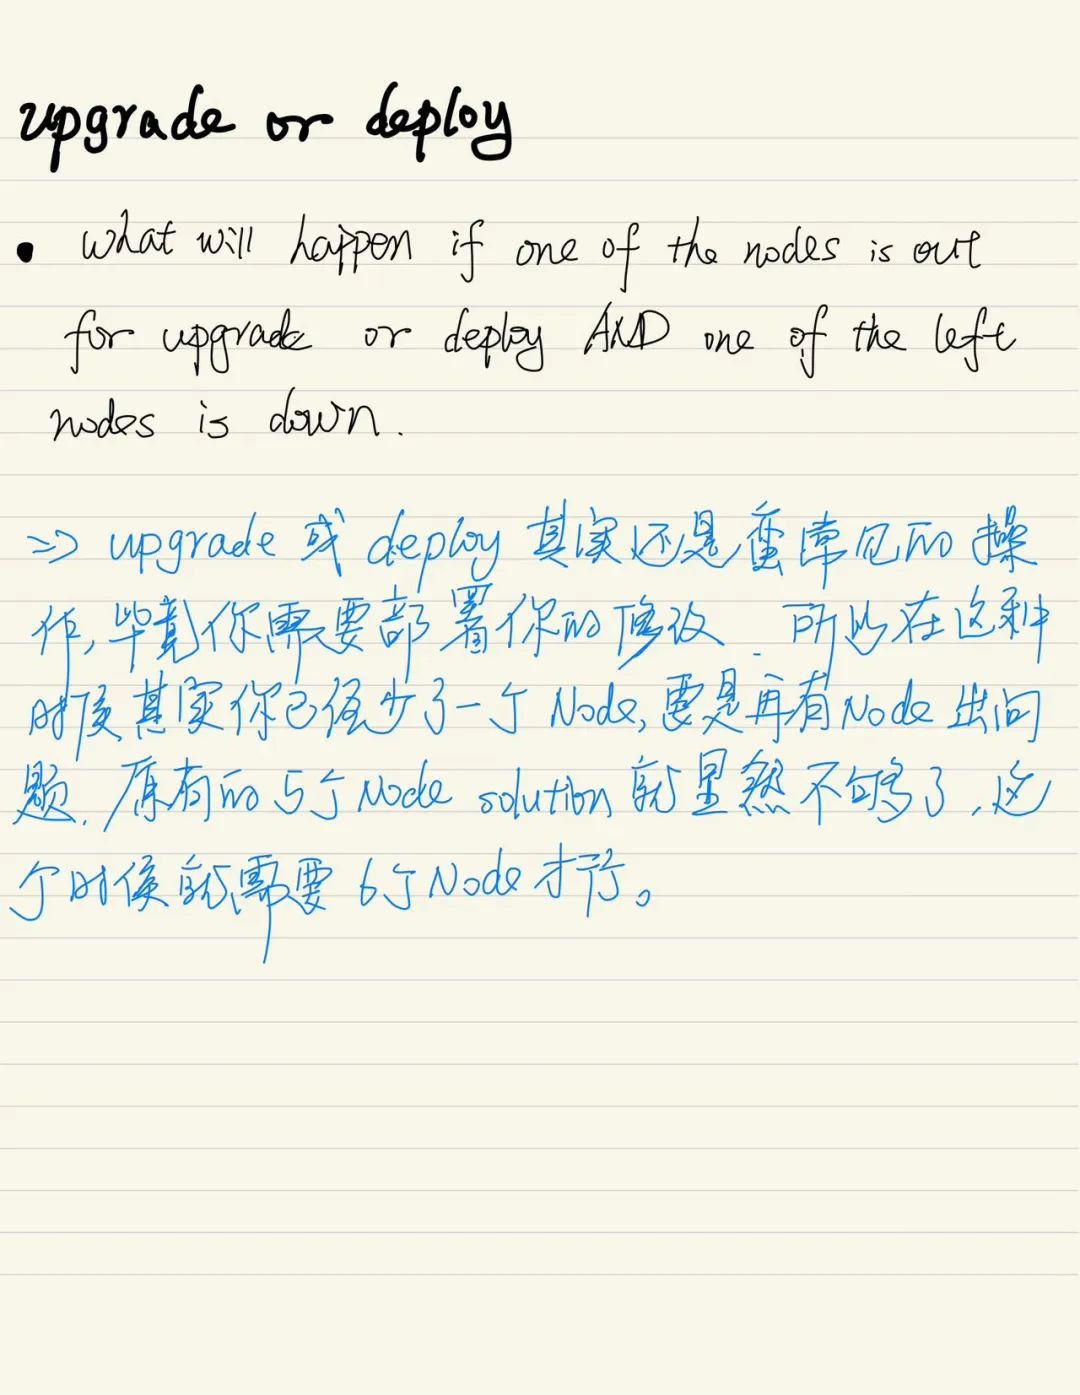 upgrade or deploy
• what will happen if one of the nodes is out
for upgrade or deploy AND one of the left
nodes is down.
=> upgrade 或 deploy 其实还是蛮常见的操
作, 毕竟你需要部署你的修改. 所以在这种
时候其实你已经少了一个 Node, 要是再有 Node 出问
题. 原有的 5个 Node solution 就显然不够了. 这
个时候就需要 6个 Node 才行。